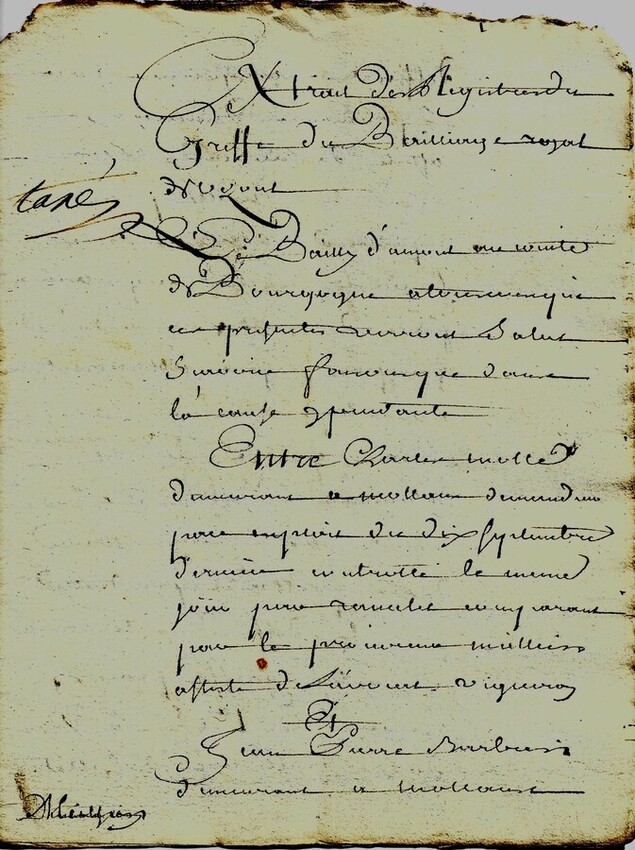 Extrait des Registres du
Greffe du Bailliage royal
de vezoul
taxé
Le Bailly d'amont au comté
de Bourgogne a tous ceux qui
ces presentes verront Salut
Sçavoir faisons que dans
la cause pendante
Entre Charle mollé
demeurant a mollans demandeur
par exploit du dix septembre
dernier controllé le meme
jour par comparant
par le procureur
assisté de
Et
Jean Pierre Barbier
demeurant a mollans